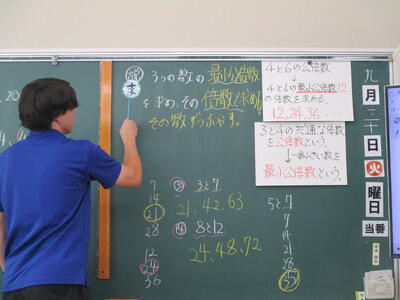 ま
3つの数の最小公倍数
を求め、その倍数を求める。
その数ずつふやす。
4と6の公倍数
↓
4と6の最小公倍数12
の倍数を求める。
12,24,36…
3と4の共通な倍数
を公倍数という。
一番小さい数を
最小公倍数という。
7
14
21
28
③ 3と7
21.42.63
④ 8と12
24.48.72
12
24
36
5と7
7
14
21
28
35
九
月
三十
日
火
曜
日
当番